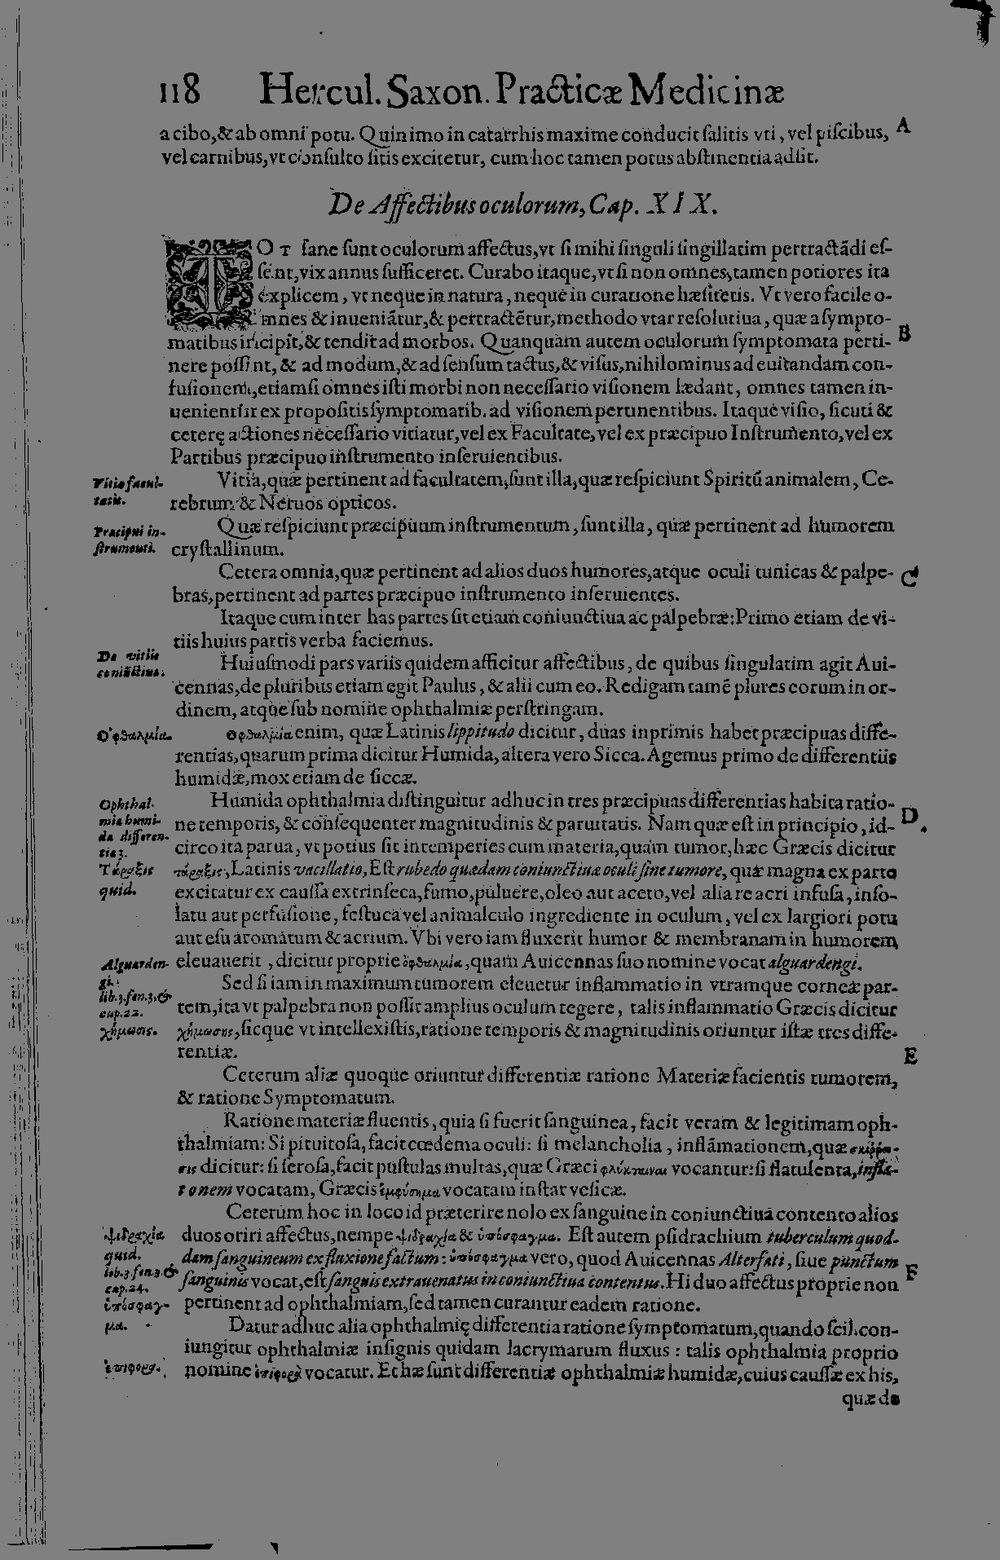 118 Hercul. Saxon. Practicæ Medicinæ
a cibo, & ab omni potu. Quinimo in catarrhis maxime conducit ſalitis vti, vel piſcibus, A
vel carnibus, vt conſulto ſitis excitetur, cum hoc tamen potus abſtinentia adſit.
De Affectibus oculorum, Cap. XIX.
TOT ſane ſunt oculorum affectus, vt ſi mihi ſinguli ſingillatim pertractãdi eſ-
ſent, vix annus ſufficeret. Curabo itaque, vt ſi non omnes, tamen potiores ita
explicem, vt neque in natura, neque in curatione hæſitetis. Vt vero facile o-
mnes & inueniãtur, & pertractẽtur, methodo vtar reſolutiua, quæ a ſympto-
matibus incipit, & tendit ad morbos. Quanquam autem oculorum ſymptomata perti- B
nere poſſint, & ad modum, & ad ſenſum tactus, & viſus, nihilominus ad euitandam con-
fuſionem, etiamſi omnes iſti morbi non neceſſario viſionem lædant, omnes tamen in-
uenientur ex propoſitis ſymptomatib. ad viſionem pertinentibus. Itaque viſio, ſicuti &
ceterę actiones neceſſario vitiatur, vel ex Facultate, vel ex præcipuo Inſtrumento, vel ex
Partibus præcipuo inſtrumento inſeruientibus.
Vitia facul-
tatis.
Vitia, quæ pertinent ad facultatem, ſunt illa, quæ reſpiciunt Spiritũ animalem, Ce-
rebrum, & Neruos opticos.
Præcipui in-
ſtrumenti.
Quæ reſpiciunt præcipuum inſtrumentum, ſunt illa, quæ pertinent ad humorem
cryſtallinum.
Cetera omnia, quæ pertinent ad alios duos humores, atque oculi tunicas & palpe- C
bras, pertinent ad partes præcipuo inſtrumento inſeruientes.
Itaque cum inter has partes ſit etiam coniunctiua ac palpebræ: Primo etiam de vi-
tiis huius partis verba faciemus.
De vitiis
coniũctiuæ.
Huiuſmodi pars variis quidem afficitur affectibus, de quibus ſingulatim agit Aui-
cennas, de pluribus etiam egit Paulus, & alii cum eo. Redigam tamẽ plures eorum in or-
dinem, atque ſub nomine ophthalmiæ perſtringam.
Ὀφθαλμία.
Οφθαλμία enim, quæ Latinis lippitudo dicitur, duas inprimis habet præcipuas diffe-
rentias, quarum prima dicitur Humida, altera vero Sicca. Agemus primo de differentiis
humidæ, mox etiam de ſiccæ.
Ophthal-
mia humi-
da differen-
tiæ 3.
Τάραξις
quid.
Humida ophthalmia diſtinguitur adhuc in tres præcipuas differentias habita ratio-
ne temporis, & conſequenter magnitudinis & paruitatis. Nam quæ eſt in principio, id- D.
circo ita parua, vt potius ſit intemperies cum materia, quam tumor, hæc Græcis dicitur
τάραξις, Latinis vacillatio, Eſt rubedo quædam coniunctiuæ oculi ſine tumore, quæ magna ex parte
excitatur ex cauſſa extrinſeca, fumo, puluere, oleo aut aceto, vel alia re acri infuſa, inſo-
latu aut perfuſione, feſtuca vel animalculo ingrediente in oculum, vel ex largiori potu
aut eſu aromatum & acrium. Vbi vero iam fluxerit humor & membranam in humorem
Alguarden-
gi.
lib. 3. fen. 3. &
cap. 22.
χήμωσις.
eleuauerit, dicitur proprie ὀφθαλμία, quam Auicennas ſuo nomine vocat alguardengi.
Sed ſi iam in maximum tumorem eleuetur inflammatio in vtramque corneæ par-
tem, ita vt palpebra non poſſit amplius oculum tegere, talis inflammatio Græcis dicitur
χήμωσις, ſicque vt intellexiſtis, ratione temporis & magnitudinis oriuntur iſtæ tres diffe-
rentiæ. E
Ceterum aliæ quoque oriuntur differentiæ ratione Materiæ facientis tumorem,
& ratione Symptomatum.
Ratione materiæ fluentis, quia ſi fuerit ſanguinea, facit veram & legitimam oph-
thalmiam: Si pituitoſa, facit œdema oculi: ſi melancholia, inflãmationem, quæ σκίῤῥω-
σις dicitur: ſi ſeroſa, facit puſtulas multas, quæ Græci φλύκταιναι vocantur: ſi flatulenta, infla-
tonem vocatam, Græcis ἐμφύσημα vocatam inſtar veſicæ.
Ceterum hoc in loco id præterire nolo ex ſanguine in coniunctiua contento alios
ψιδραχία
quid.
lib. 3. fen. 3. &
cap. 24.
ὑπόσφαγ-
μα.
duos oriri affectus, nempe ψιδραχία & ὑπόσφαγμα. Eſt autem pſidrachium tuberculum quod-
dam ſanguineum ex fluxione factum: ὑπόσφαγμα vero, quod Auicennas Alterfati, ſiue punctum F
ſanguinis vocat, eſt ſanguis extrauenatus in coniunctiua contentus. Hi duo affectus proprie non
pertinent ad ophthalmiam, ſed tamen curantur eadem ratione.
Datur adhuc alia ophthalmię differentia ratione ſymptomatum, quando ſcil. con-
iungitur ophthalmiæ inſignis quidam lacrymarum fluxus: talis ophthalmia proprio
ἐπιφορά.
nomine ἐπιφορὰ vocatur. Et hæ ſunt differentiæ ophthalmiæ humidæ, cuius cauſſæ ex his,
quæ de